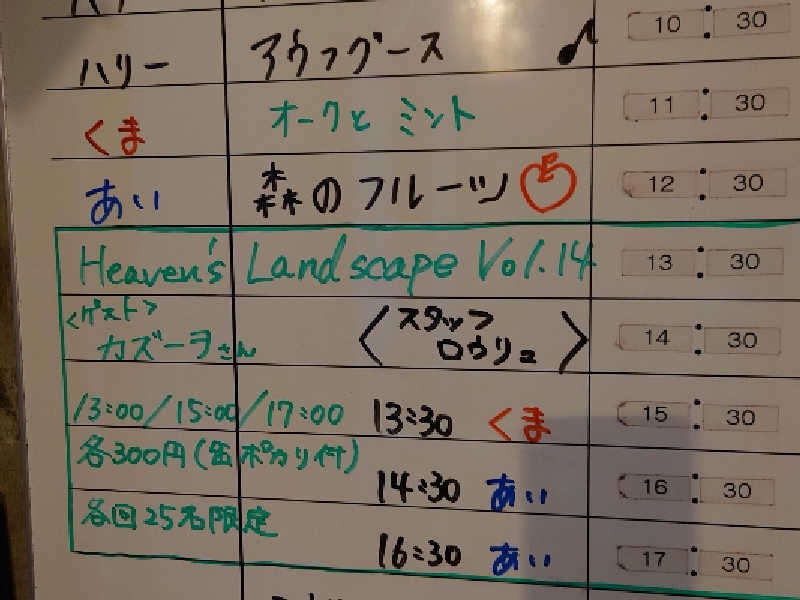 ハリー アウフグース 10:30
くま オークと ミント 11:30
あい 森のフルーツ 12:30
Heaven's Landscape Vol.14 13:30
<ゲスト> 〈スタッフ 14:30
カズーヲさん ロウリュ〉
13:00/15:00/17:00 13:30 くま 15:30
各300円(缶ポカリ付) 14:30 あい 16:30
各回25名限定 16:30 あい 17:30